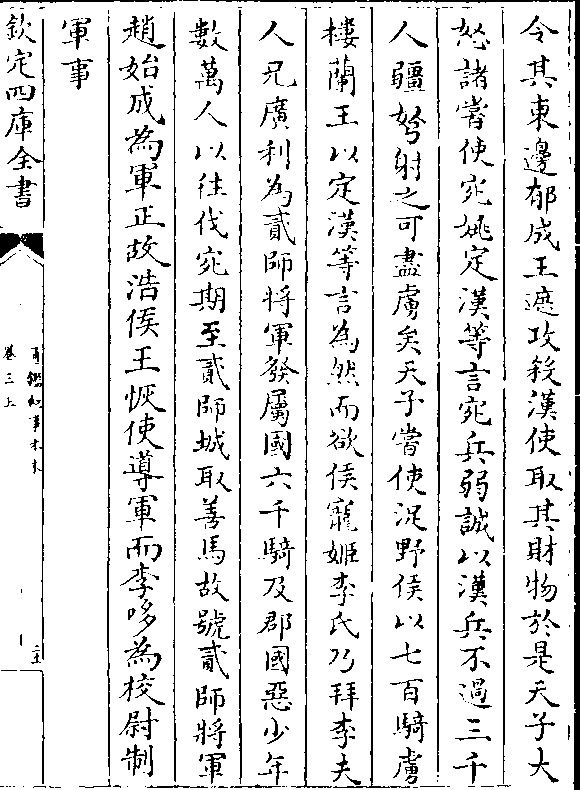 令其東邊郁成王遮攻殺漢使取其財物於是天子大
怒諸嘗使宛姚定漢等言宛兵弱誠以漢兵不過三千
人彊弩射之可盡虜矣天子嘗使浞野侯以七百騎虜
樓蘭王以定漢等言為然而欲侯寵姬李氏乃拜李夫
人兄廣利為貳師將軍發屬國六千騎及郡國惡少年
數萬人以往伐宛期至貳師城取善馬故號貳師將軍
趙始成為軍正故浩侯王恢使導軍而李哆為校尉制
軍事
欽定四庫全書
卷三上